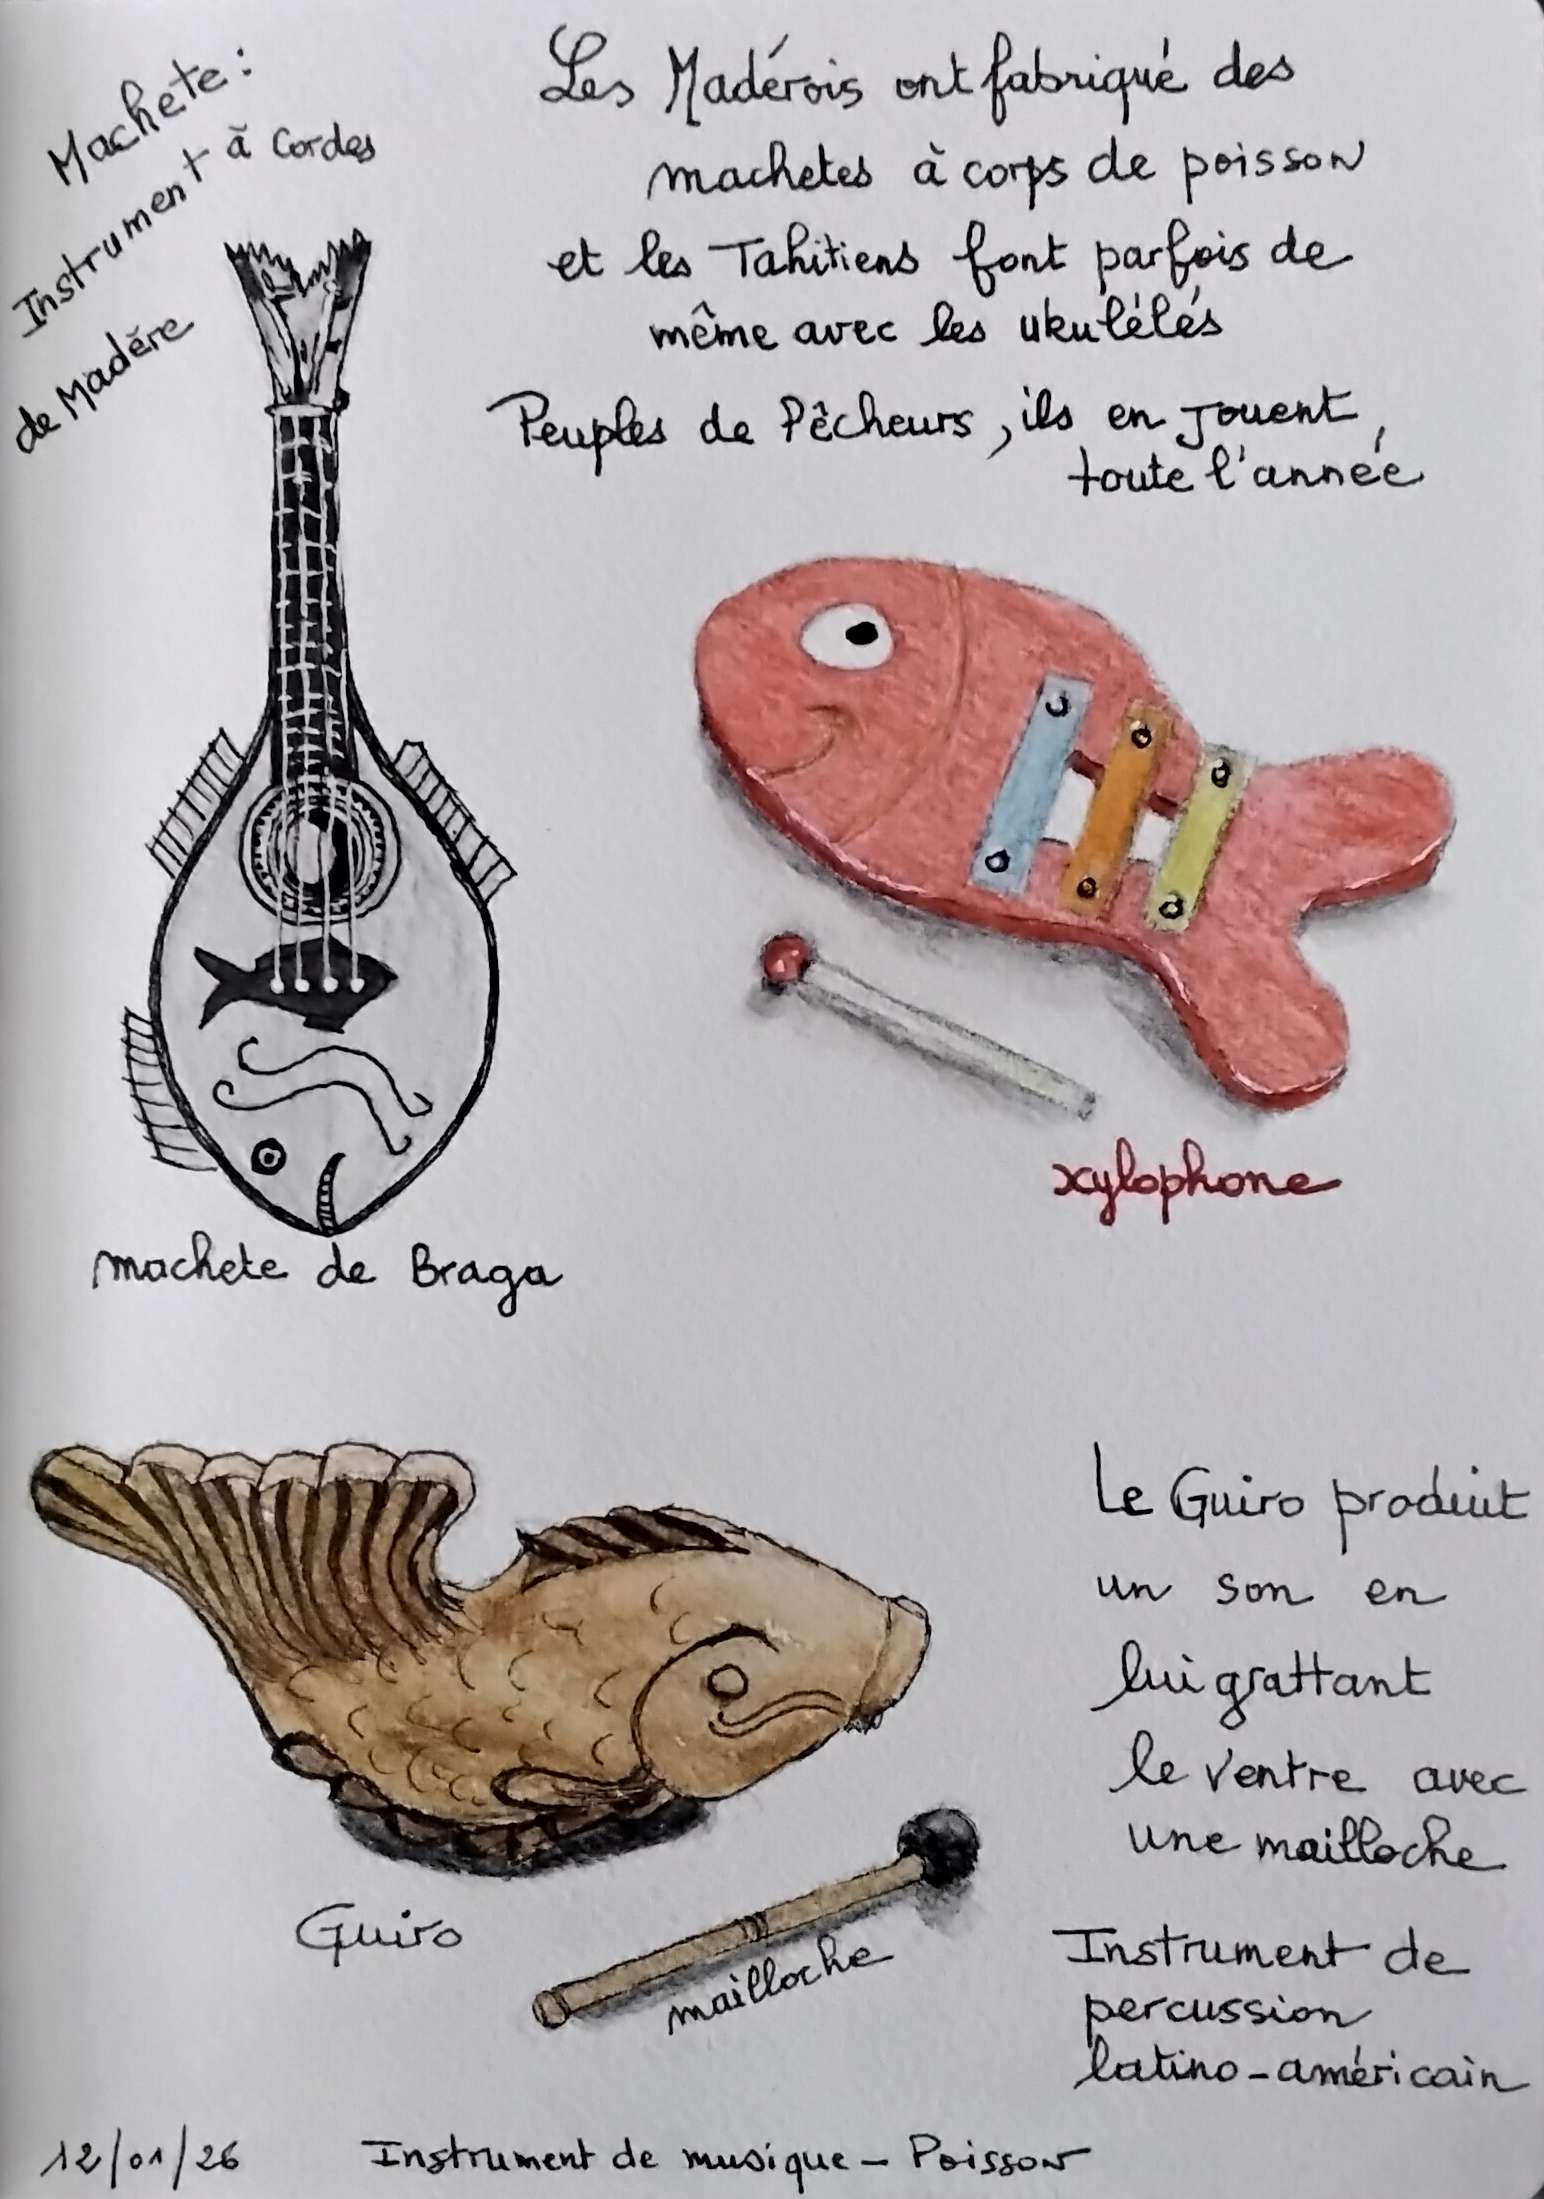 Machete :
Instrument à Cordes
de Madère
Les Madérois ont fabriqué des
machetes à corps de poisson
et les Tahitiens font parfois de
même avec les ukulélés
Peuples de Pêcheurs, ils en jouent,
toute l'année
xylophone
machete de Braga
Le Guiro produit
un son en
lui grattant
le ventre avec
une mailloche
Guiro
mailloche
Instrument de
percussion
latino-américain
12/01/26 Instrument de musique - Poisson